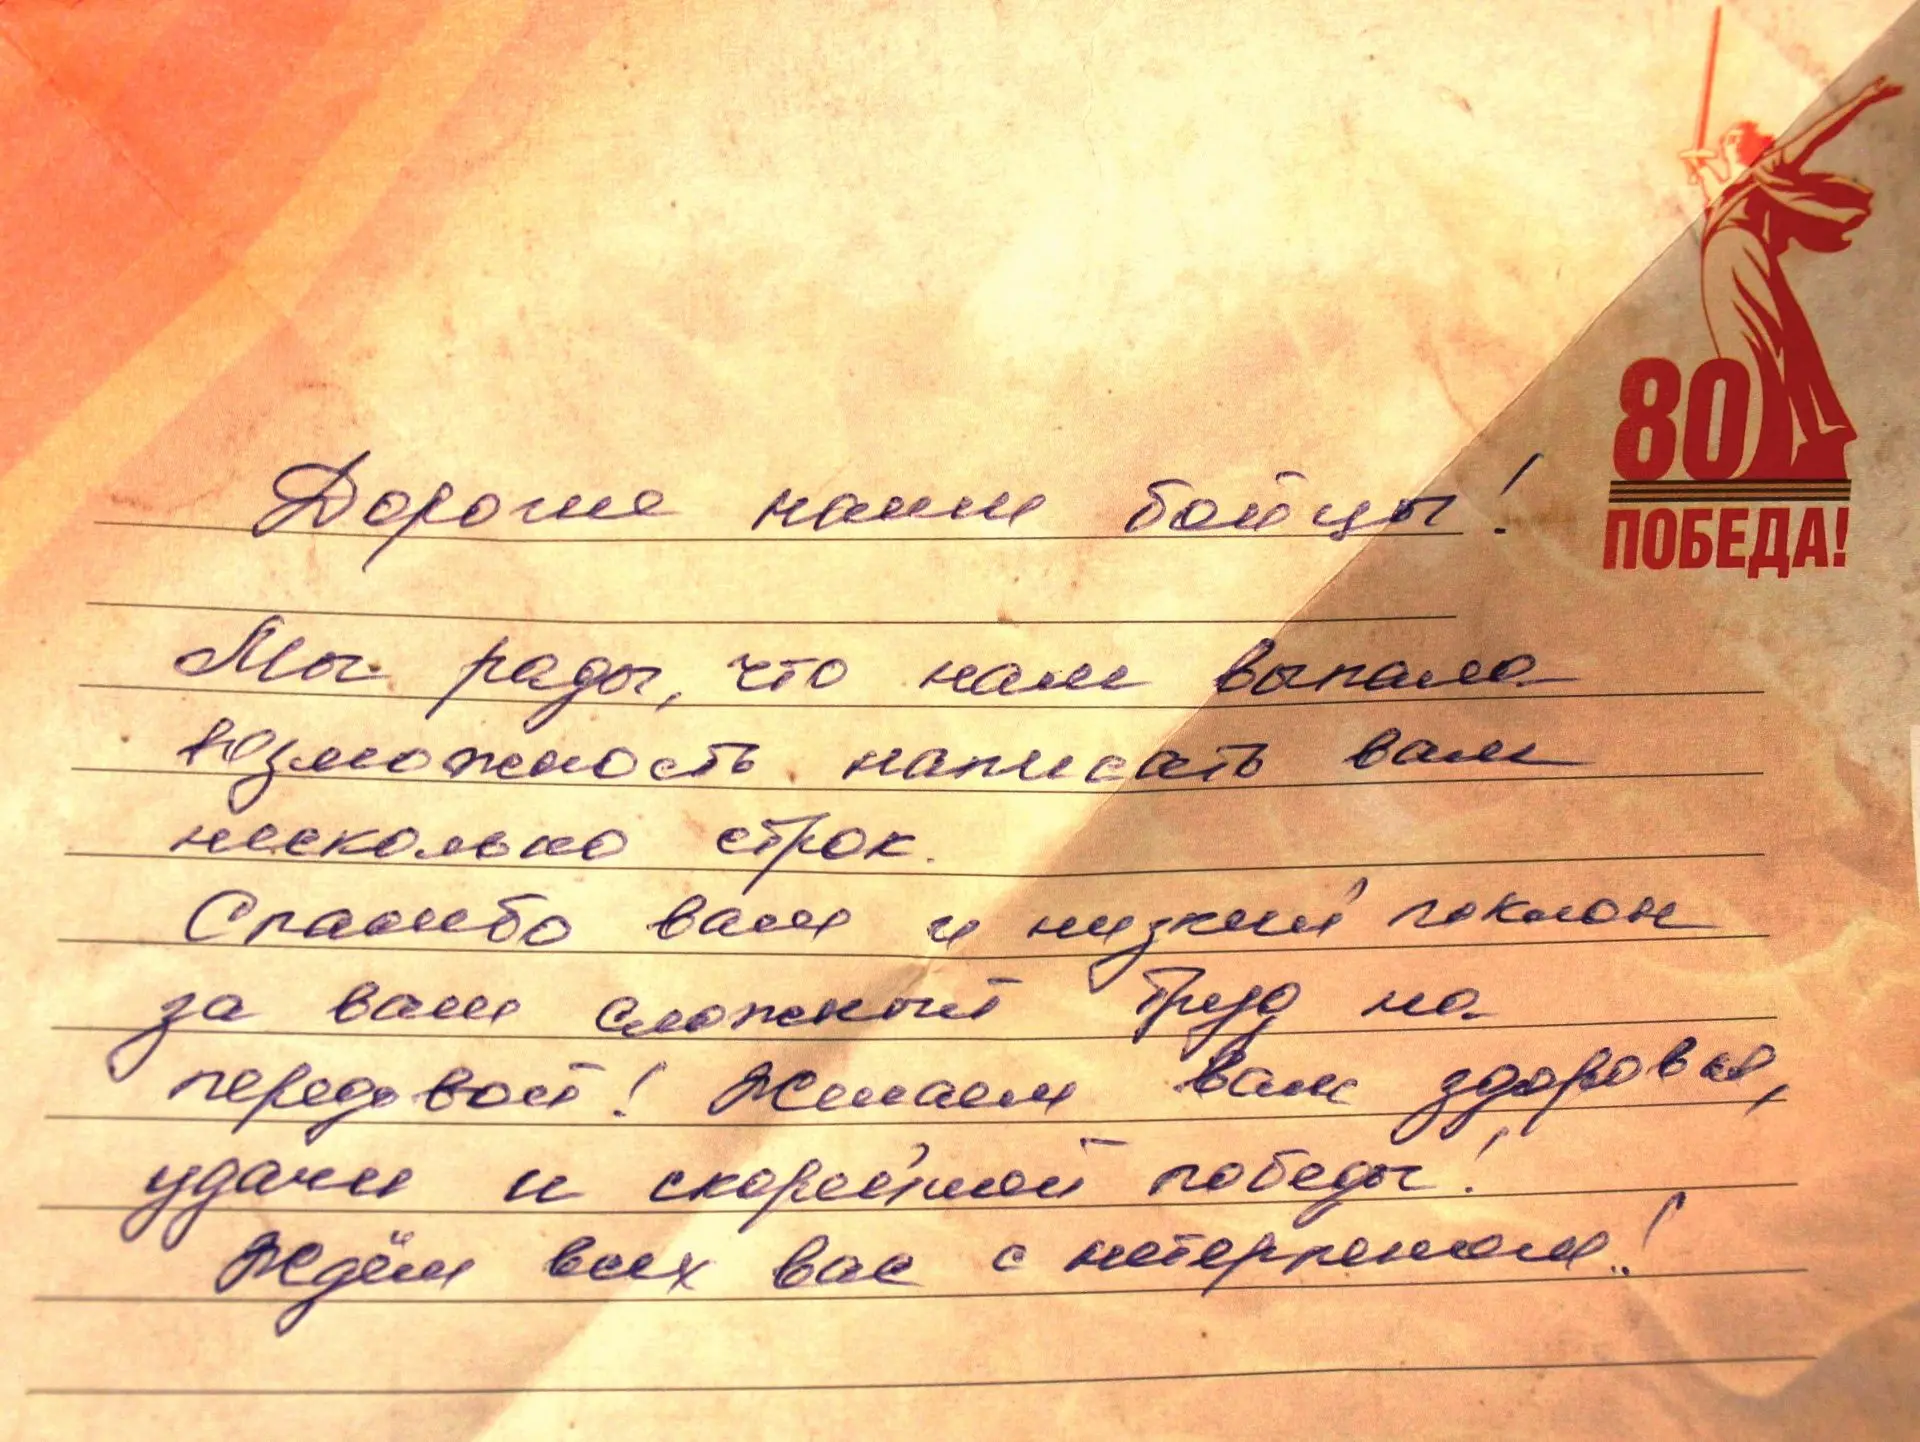 80
ПОБЕДА!
Дорогие наши бойцы!
Мы рады, что нам выпала
возможность написать вам
несколько строк.
Спасибо вам и низкий поклон
за ваш сложный труд на
передовой! Желаем вам здоровья,
удачи и скорейшей победы!
Ждём всех вас с нетерпением!